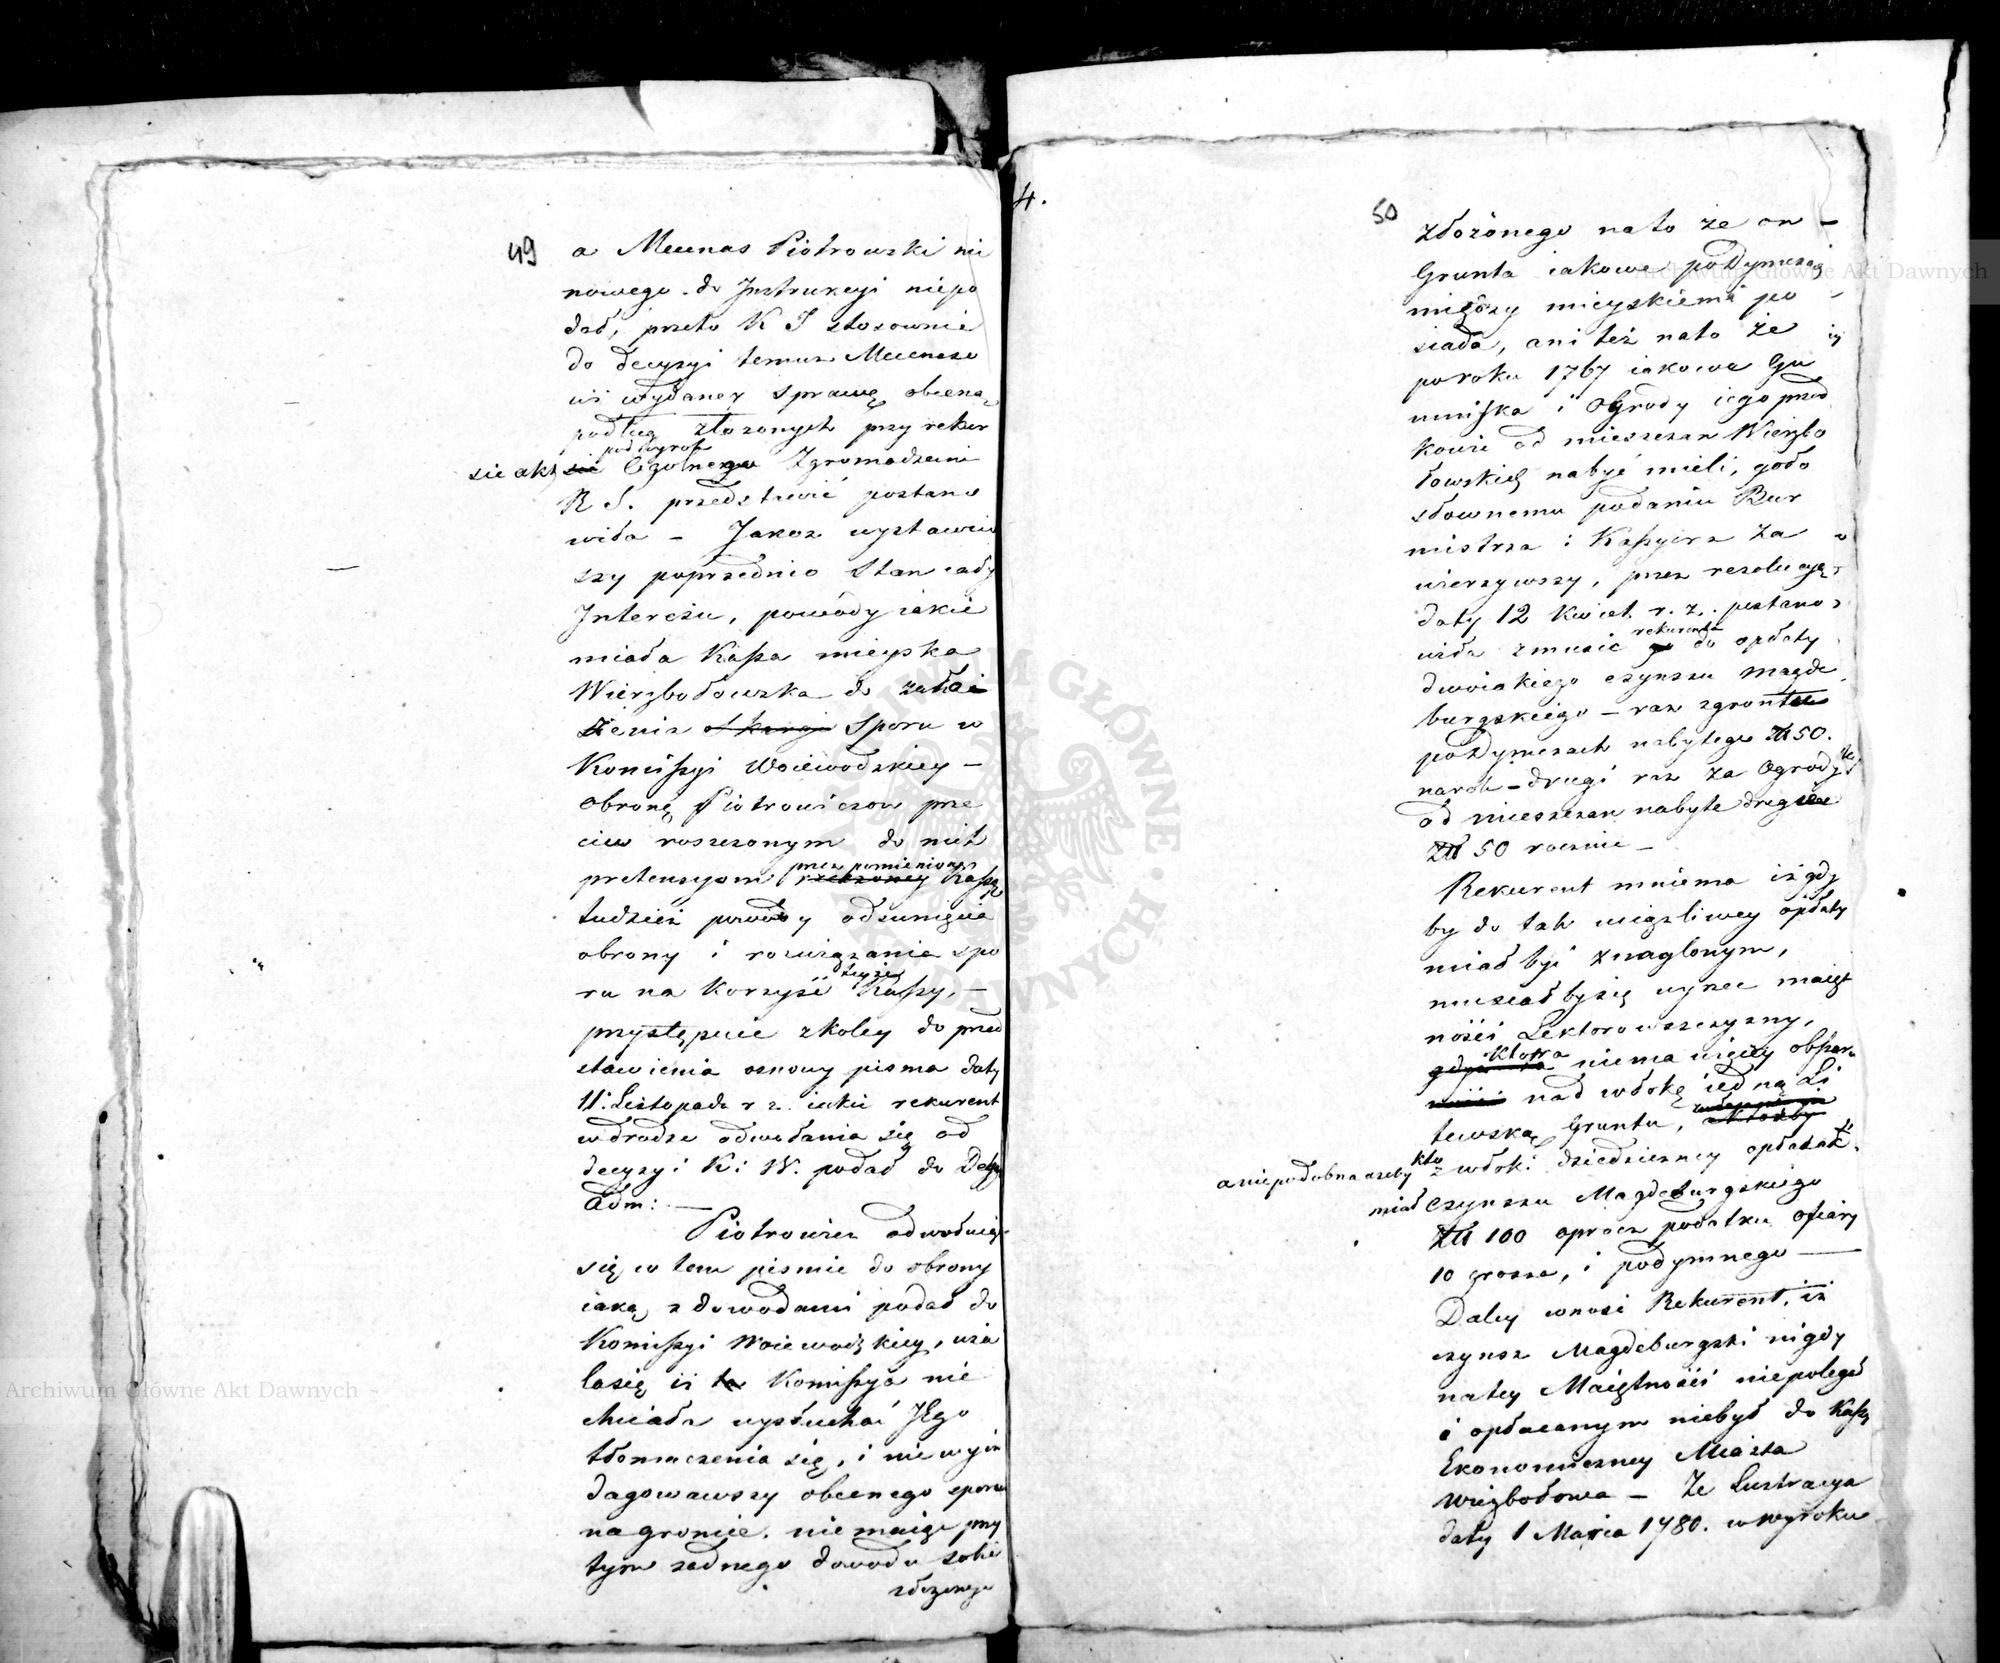 49
a Mecenas Piotrowski nic
nowego do Instrukcyi niepo
dał, przeto K I stosownie
do decyzyi temuż Mecenaso
wi wydaney Sprawę obecną
podług złożonych przy rekur
sie akt pod wyrok Ogolnego Zgromadzenia
R S. przedstawić postano
wiła – Jakoż wystawiw
szy poprzednio Stan cały
Interesu, powody iakie
miała Kassa mieyska
Wierzbołowska do zało
żenia skargi Sporu w
Komissyi Woiewodzkiey –
obronę Piotrowiczow prze
ciw roszczonym do nich
pretensyom przez pomienioną Kassę
tudzież powody odsunięcia
obrony i rozwiązania spo
ru na korzyść teyże Kassy, –
przystępuie zkoley do przed
stawienia osnowy pisma daty
11. Listopada r z. iakie rekurent
w drodze odwołania się od
decyzyi K: W. podał do Deleg
Adm: –
Piotrowicz odwołuiąc
się w tem pismie do obrony
iaką z dowodami podał do
Komissyi Woiewodzkiey, uża
la się iż ta Komissya nie
chciała wysłuchać Jego
tłomaczenia się, i nie wyin
dagowawszy obecnego sporu
na gruncie, nie maiąc przy
tym żadnego dowodu sobie
złożonego
4.
50
złożonego na to że on –
Grunta iakowe poddymczaą
między mieyskiemi po
siada, ani też na to że
po roku 1767 iakowe Gu
mniska i Ogrody iego przod
kowie od mieszczan Wierzbo
łowskich nabyć mieli, goło
słownemu podaniu Bur
mistrza i Kassyera za
wierzywszy, przez rezolucyę
daty 12 Kwiet. r. z. postano
wiła zmusić rekurenta do opłaty
dwoiakiego czynszu magde
burgskiego – raz z gruntu
po Dymczach nabytego Zł 50.
na rok – drugi raz za Ogrody
od mieszczan nabyte drugie
Zł 50 rocznie –
Rekurent mniema iż gdy
by do tak uciążliwey opłaty
miał być znaglonym,
musiałby się wyrzec maięt
ności Lektorowszczyzny,
gdyż ta która niema więcey obszer
ności nad włokę iedną Li
tewską Gruntu,
a niepodobna ażeby kto z włoki dziedziczney opłacać
miał czynszu Magdeburgskiego
Zł 100 oprócz podatku ofiary
10 grosza, i podymnego –
Daley wnosi Rekurent, iż
czynsz Magdeburgski nigdy
na tey Maiętności niepolegał
i opłacanym niebył do Kassy
Ekonomiczney Miasta
Wierzbołowa – Że Lustracya
daty 1 Marca 1780. w wyroku
Archiwum Główne Akt Dawnych
Archiwum Główne Akt Dawnych
ARCHIWUM GŁÓWNE AKT DAWNYCH